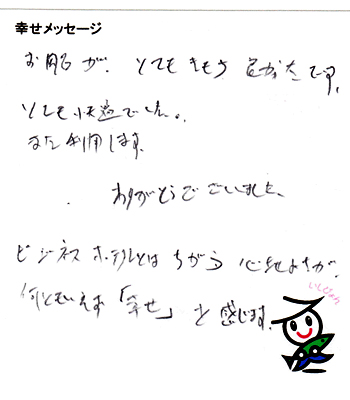 幸せメッセージ
お風呂が、とてもきもち良かったです。
とても快適でした。
また利用します。
ありがとうございました。
ビジネスホテルとはちがう心地よさが、
何ともいえず「幸せ」と感じます。